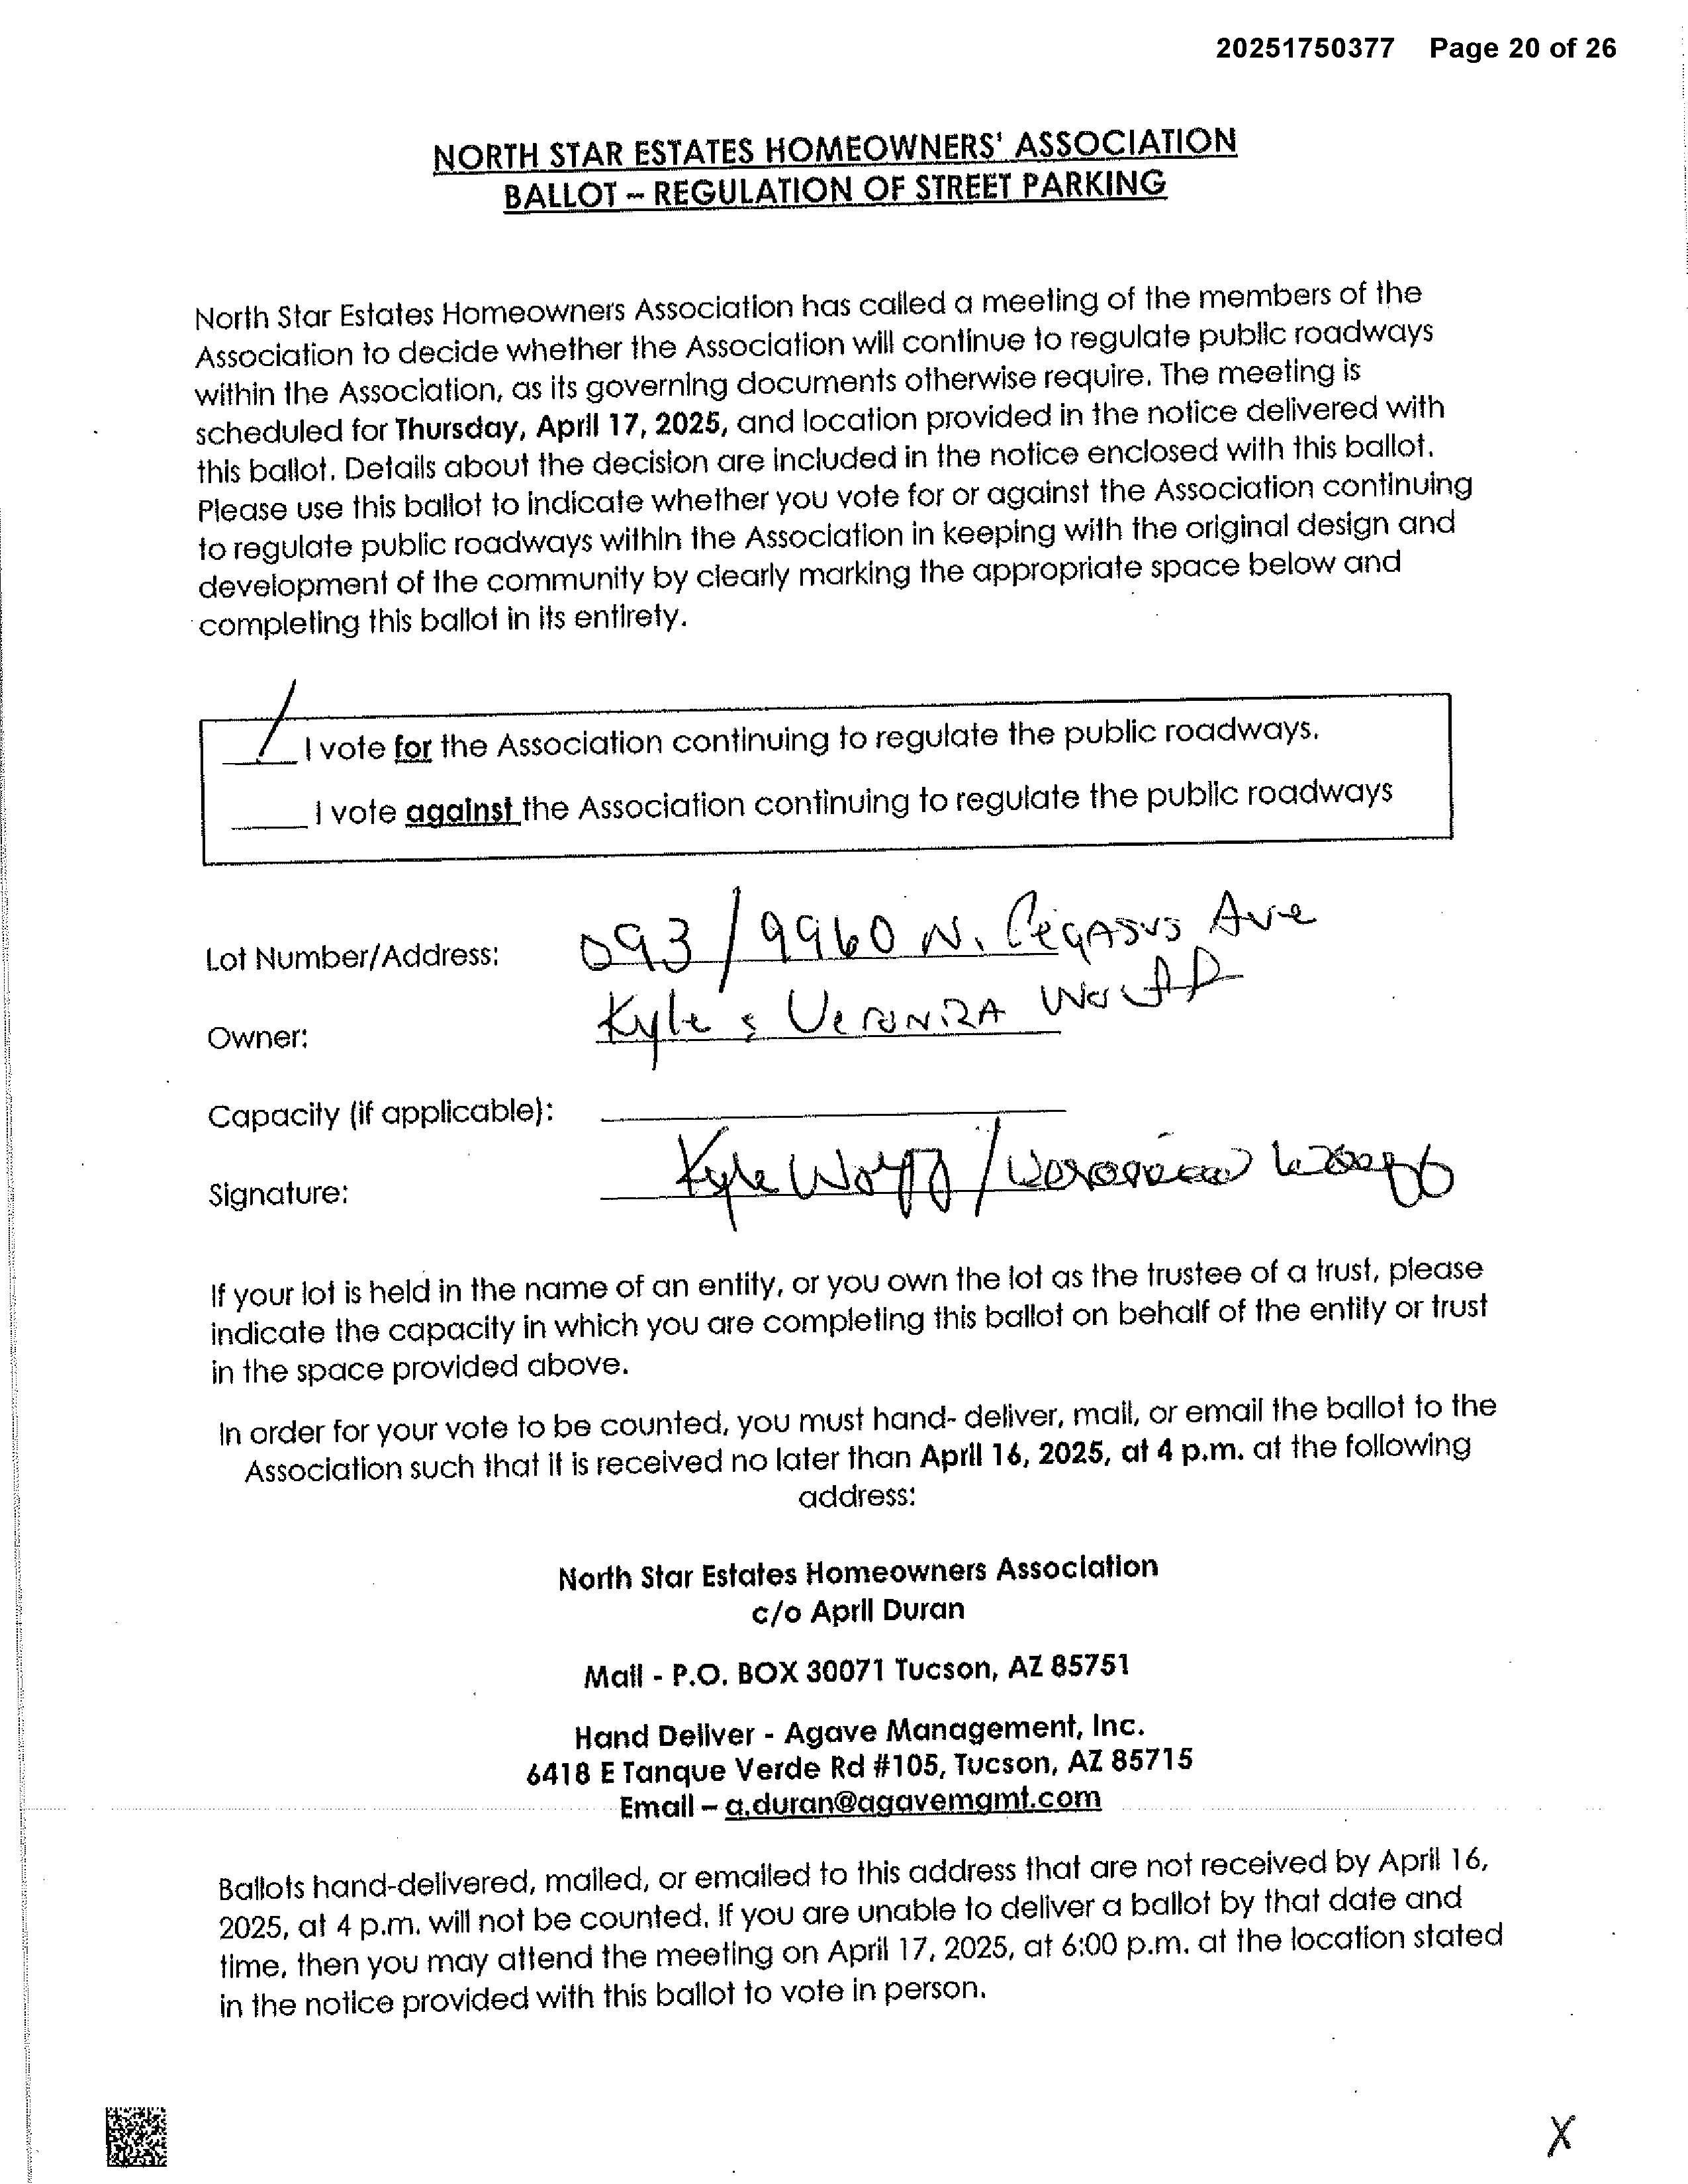 20251750377 Page 20 of 26
NORTH STAR ESTATES HOMEOWNERS' ASSOCIATION
BALLOT – REGULATION OF STREET PARKING
North Star Estates Homeowners Association has called a meeting of the members of the
Association to decide whether the Association will continue to regulate public roadways
within the Association, as its governing documents otherwise require. The meeting is
scheduled for Thursday, April 17, 2025, and location provided in the notice delivered with
this ballot. Details about the decision are included in the notice enclosed with this ballot.
Please use this ballot to indicate whether you vote for or against the Association continuing
to regulate public roadways within the Association in keeping with the original design and
development of the community by clearly marking the appropriate space below and
completing this ballot in its entirety.
I vote for the Association continuing to regulate the public roadways.
I vote against the Association continuing to regulate the public roadways
Lot Number/Address: 093/9960 N. Pegasus Ave
Owner: Kyle & Veronica
Capacity (if applicable):
Signature: Kyle Wolff / Veronica Wolff
If your lot is held in the name of an entity, or you own the lot as the trustee of a trust, please
indicate the capacity in which you are completing this ballot on behalf of the entity or trust
in the space provided above.
In order for your vote to be counted, you must hand- deliver, mail, or email the ballot to the
Association such that it is received no later than April 16, 2025, at 4 p.m. at the following
address:
North Star Estates Homeowners Association
c/o April Duran
Mail - P.O. BOX 30071 Tucson, AZ 85751
Hand Deliver - Agave Management, Inc.
6418 E Tanque Verde Rd #105, Tucson, AZ 85715
Email – a.duran@agavemgmt.com
Ballots hand-delivered, mailed, or emailed to this address that are not received by April 16,
2025, at 4 p.m. will not be counted. If you are unable to deliver a ballot by that date and
time, then you may attend the meeting on April 17, 2025, at 6:00 p.m. at the location stated
in the notice provided with this ballot to vote in person.
X